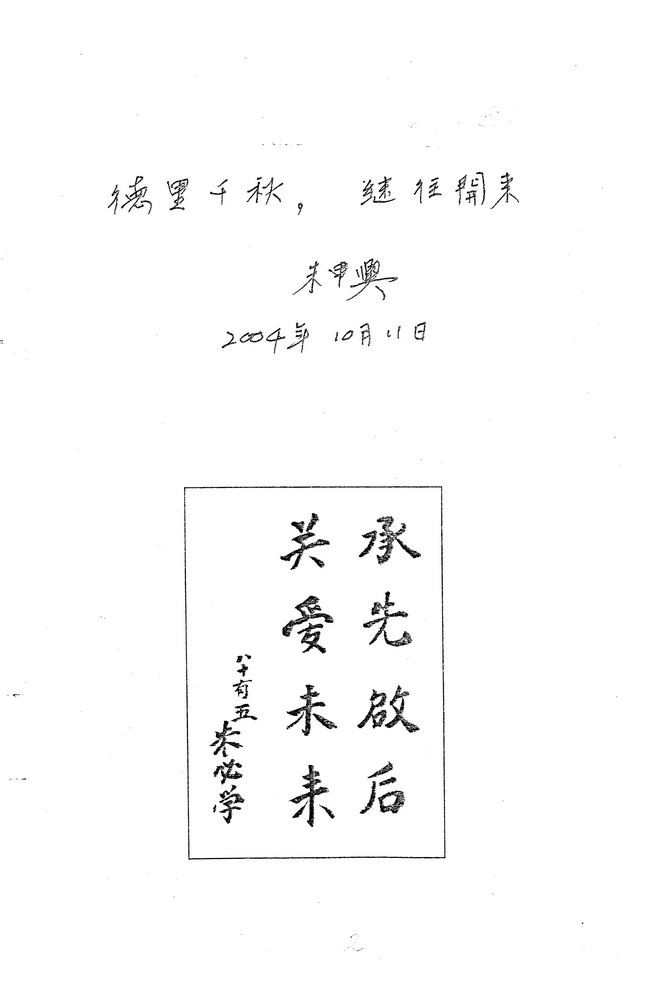 德里千秋，继往開来
朱甲興
2004年 10月11日
承先啟后
关爱未来
八十有五
朱必学
2